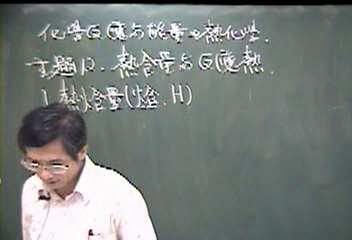 化學反應与能量 熱化學.
主題12. 熱含量与反應熱.
1.熱含量(焓.H)